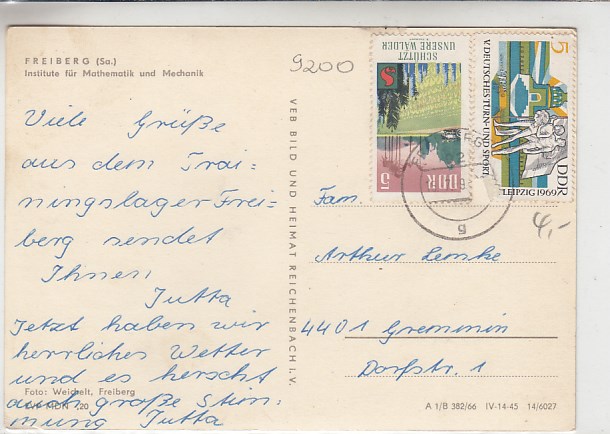 FREIBERG (Sa.)
Institute für Mathematik und Mechanik
Viele Grüße
aus dem Trai=
ningslager Frei=
berg sendet
Ihnen
Jutta
Jetzt haben wir
herrliches Wetter
und es herscht
auch große Stim=
mung Jutta
Foto: Weichelt, Freiberg
EVP MDN -,20
VEB BILD UND HEIMAT REICHENBACH i. V.
9200
SCHÜTZT
UNSERE WÄLDER
DDR 5
5
V. DEUTSCHES TURN- UND SPORT
LEIPZIG 1969
DDR
g
4,-
Fam.
Arthur Lemke
4401 Gremmin
Dorfstr. 1
A 1/B 382/66 IV-14-45 14/6027